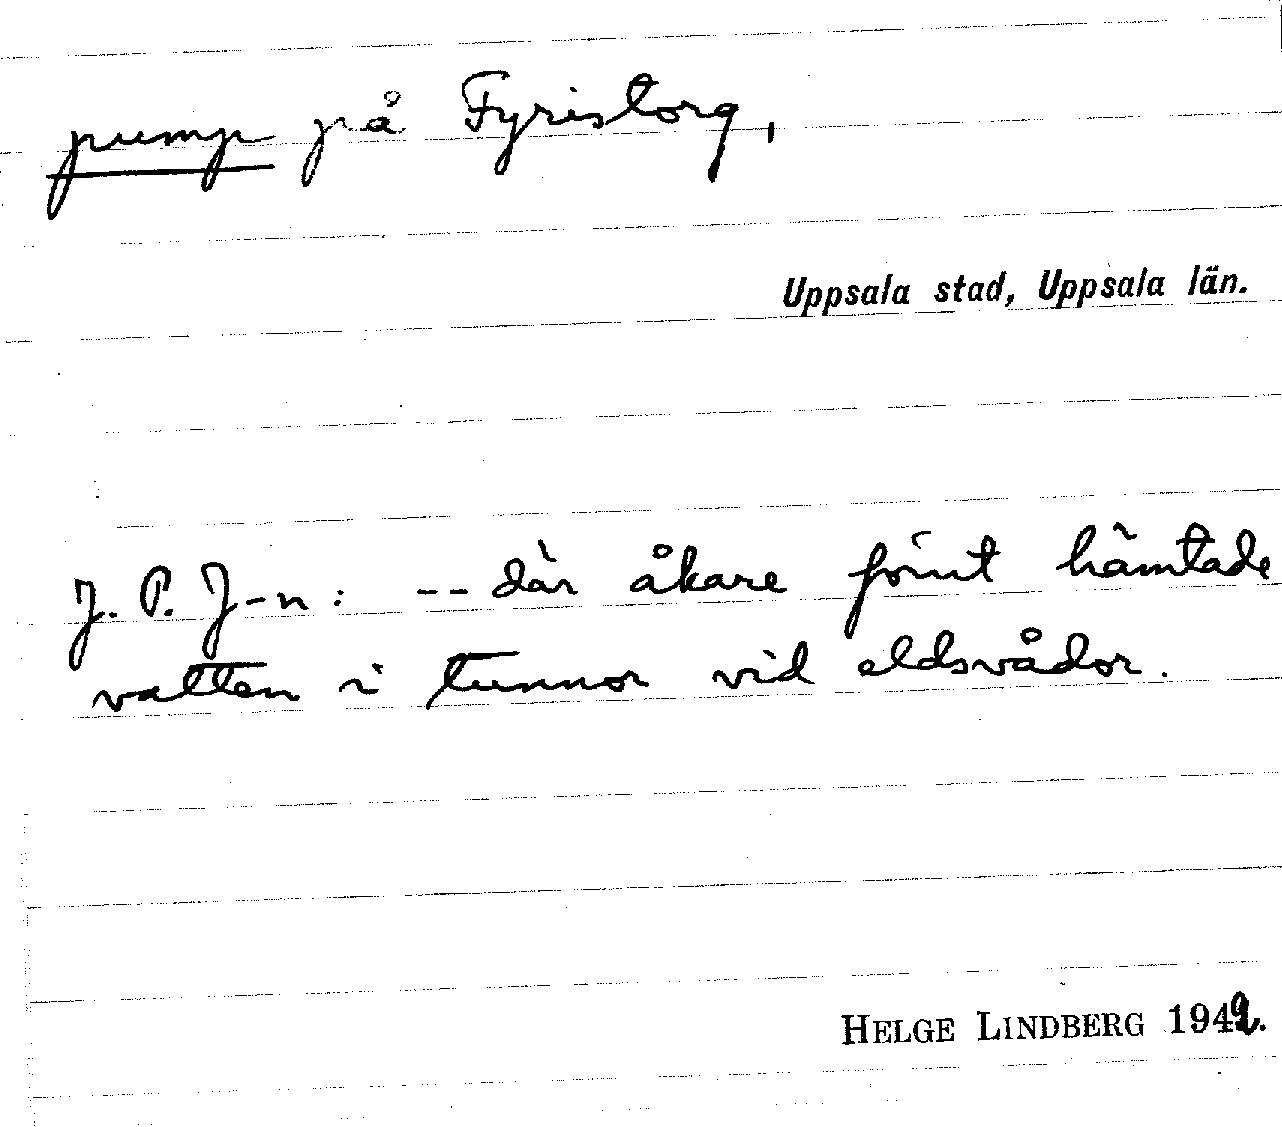 pump på Fyristorg,
Uppsala stad, Uppsala län.
J. P. J-n: -- där åkare förut hämtade
vatten i tunnor vid eldsvådor.
HELGE LINDBERG 1942.